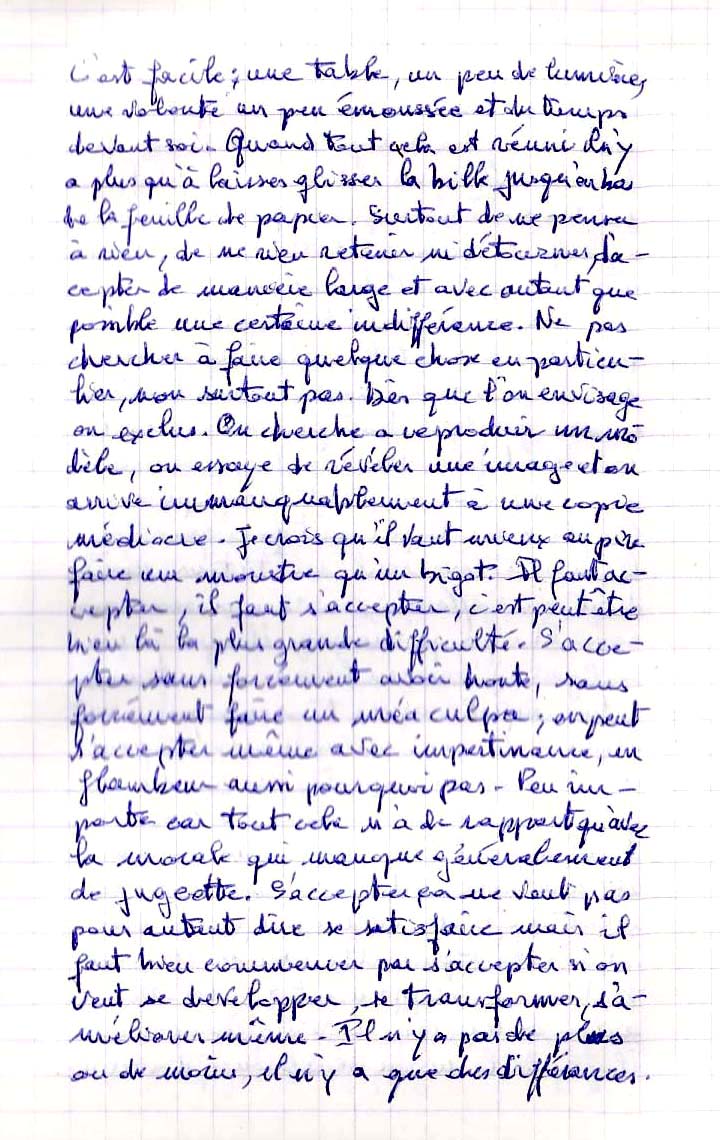 C'est facile ; une table, un peu de lumière,
une volonté un peu émoussée et du temps
devant soi. Quand tout cela est réuni il n'y
a plus qu'à laisser glisser la bille jusqu'en bas
de la feuille de papier. Surtout de ne penser
à rien, de ne rien retenir ni détourner, d'a-
cepter de manière large et avec autant que
possible une certaine indifférence. Ne pas
chercher à faire quelque chose en particu-
lier, non surtout pas. Dès que l'on envisage
on exclus. On cherche a reproduir un mo
dèle, on essaye de révéler une image et on
arrive immanquablement à une copie
médiocre. Je crois qu'il vaut mieux au pire
faire un monstre qu'un bigot. Il faut ac-
cepter, il faut s'accepter, c'est peut être
bien là la plus grande difficulté. S'acce-
pter sans forcément avoir honte, sans
forcément faire un méa culpa ; on peut
s'accepter même avec impertinance, en
flambeur aussi pourquoi pas - Peu im-
porte car tout cela n'a de rapport qu'avec
la morale qui manque généralement
de jugeotte. S'accepter ça ne veut pas
pour autant dire se satisfaire mais il
faut bien commencer par s'accepter si on
veut se developper, se transformer, s'a-
méliorer même - Il n'y a pas de plus
ou de moins, il n'y a que des différences.